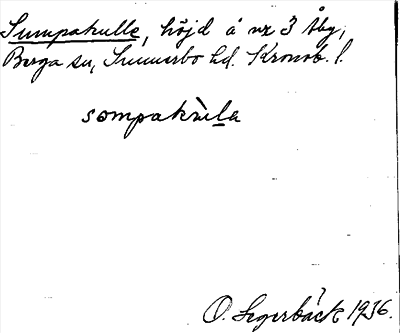 Sumpakulle, höjd å nr 3 Åby,
Berga sn, Sunnerbo hd. Kronob. l.
sompakùla
O. Segerbäck 1936.